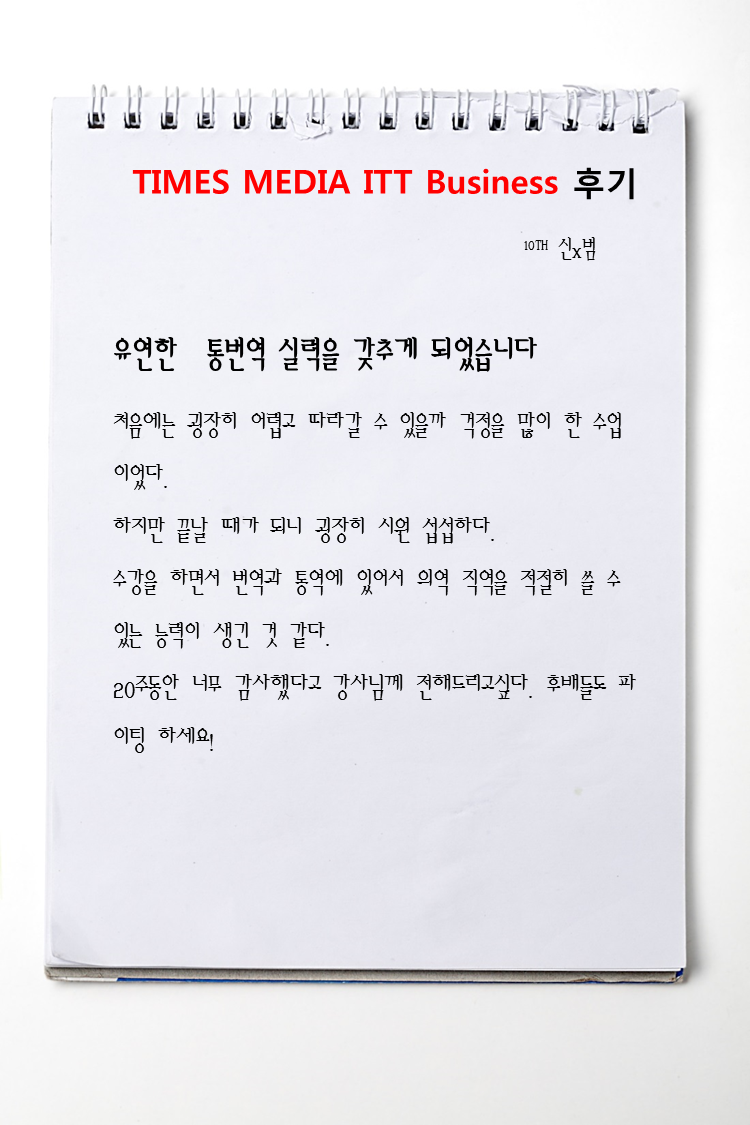 TIMES MEDIA ITT Business 후기
10TH 신x범
유연한 통번역 실력을 갖추게 되었습니다
처음에는 굉장히 어렵고 따라갈 수 있을까 걱정을 많이 한 수업
이었다.
하지만 끝날 때가 되니 굉장히 시원 섭섭하다.
수강을 하면서 번역과 통역에 있어서 의역 직역을 적절히 쓸 수
있는 능력이 생긴 것 같다.
20주동안 너무 감사했다고 강사님께 전해드리고싶다. 후배들도 파
이팅 하세요!